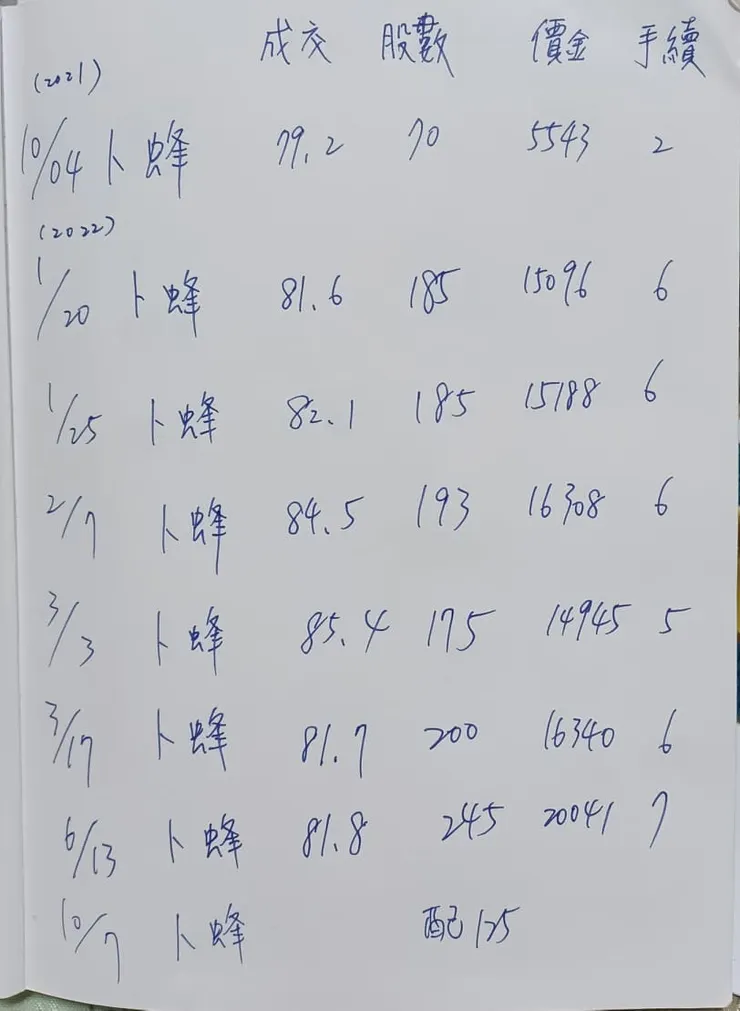 成交 股數 價金 手續
(2021)
10/04 卜蜂 79.2 70 5543 2
(2022)
1/20 卜蜂 81.6 185 15096 6
1/25 卜蜂 82.1 185 15188 6
2/7 卜蜂 84.5 193 16308 6
3/3 卜蜂 85.4 175 14945 5
3/17 卜蜂 81.7 200 16340 6
6/13 卜蜂 81.8 245 20041 7
10/7 卜蜂 配125